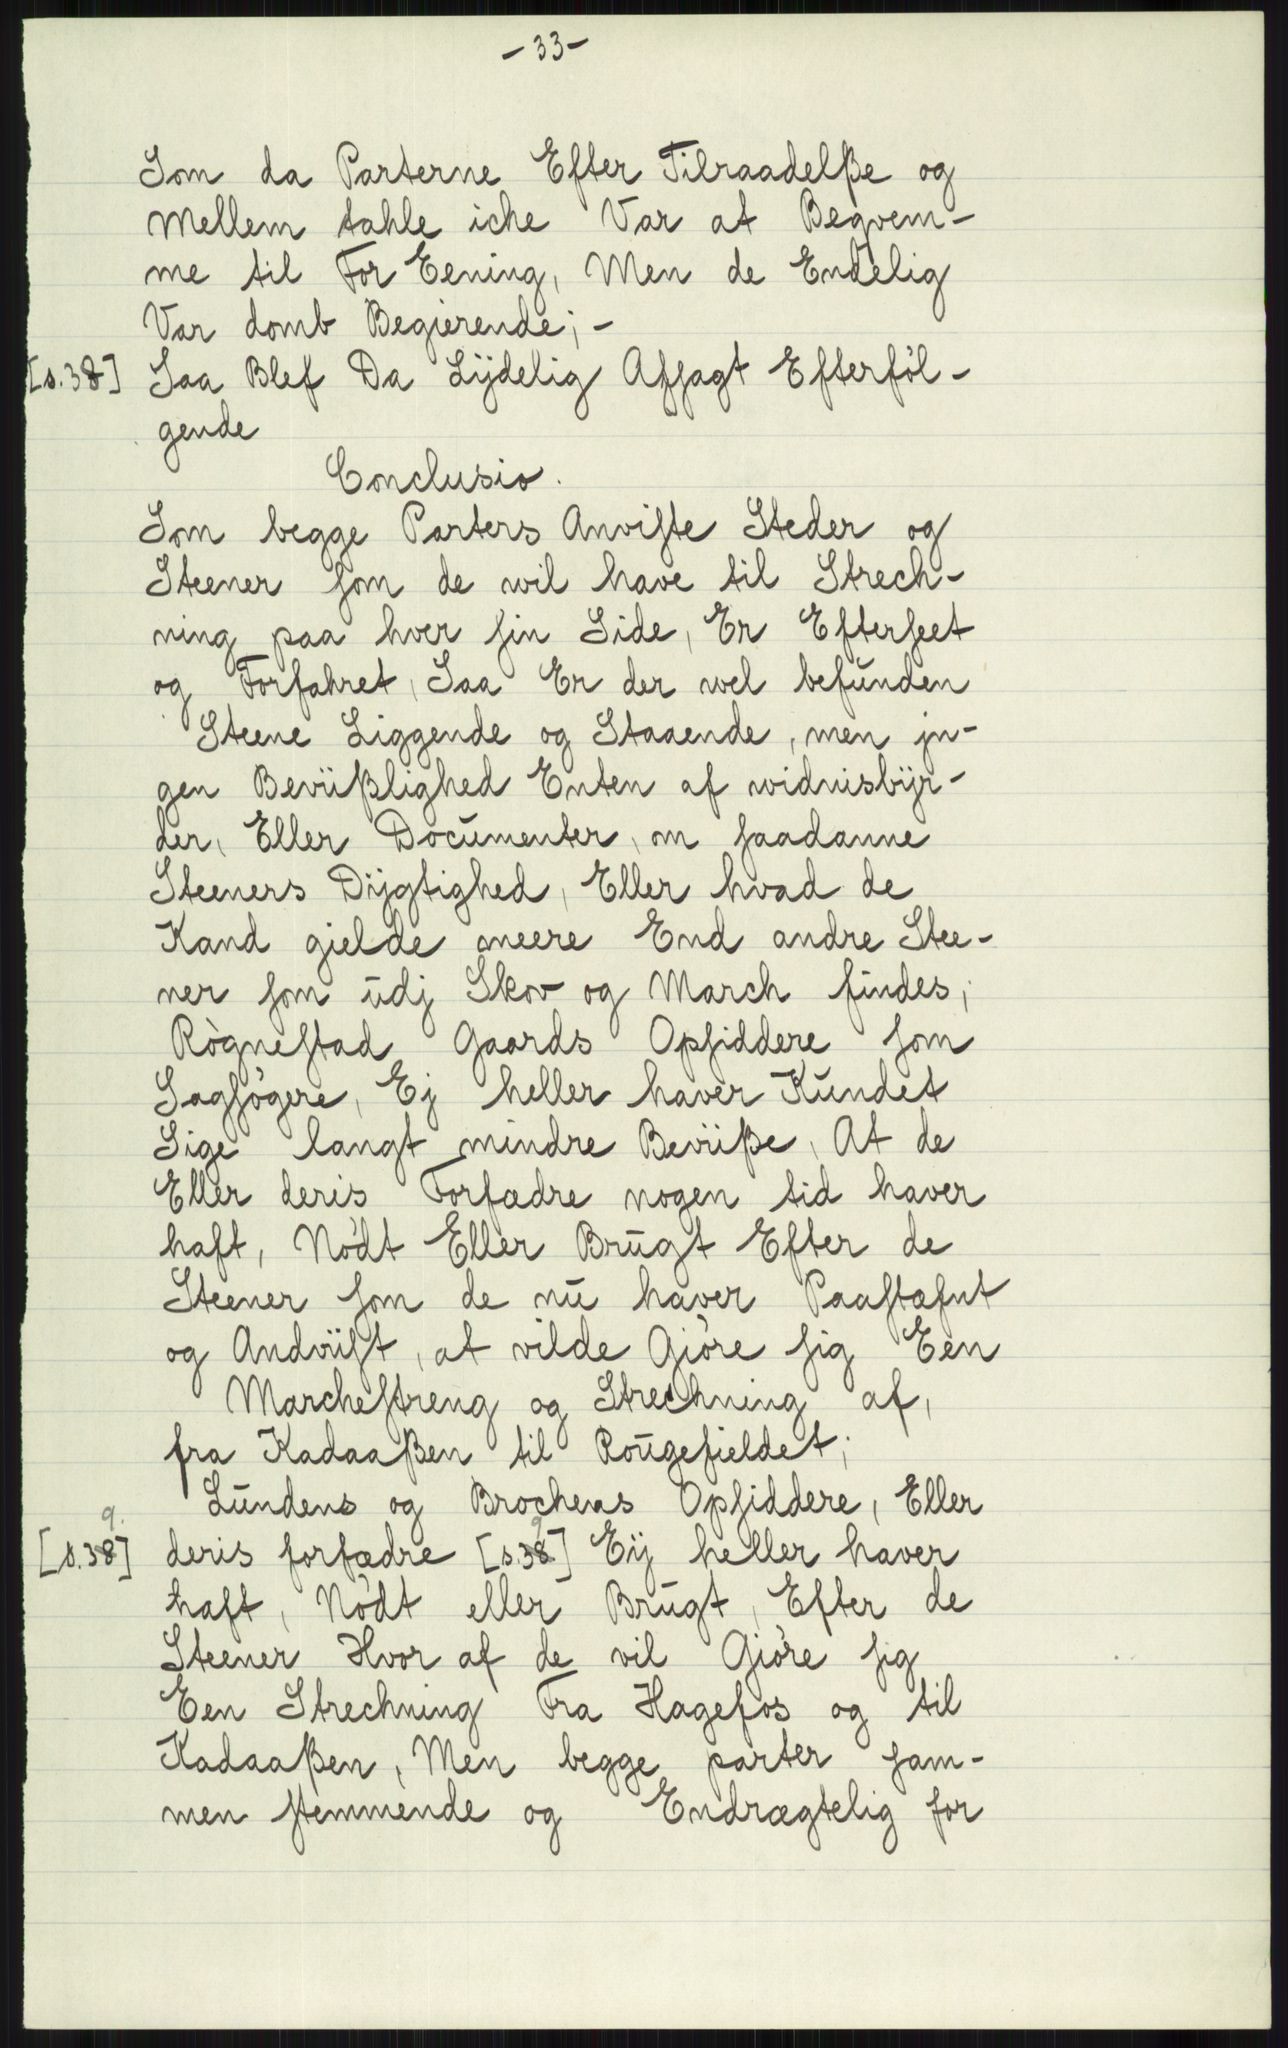 - 33 -
Som da Parterne Efter Tilraadelße og
Mellem tahle iche Var at Beqvem-
me til For Eening, Men de Endelig
Var domb Begierende; -
[s.38] Saa Blef Da Lÿdelig Afsagt Efterføl-
gende
Conclusio.
Som begge Parters Anviste Steder og
Steener som de wil have til Strech-
ning paa hver sin Side, Er Efterseet
og Forfahret, Saa Er der wel befunden
Steene Liggende og Staaende, men jn-
gen Beviißlighed Enten af widnisbÿr-
der, Eller Documenter, om saadanne
Steeners Dÿgtighed, Eller hvad de
Kand gielde meere End andre Stee-
ner som udj Skov og March findes,
Rògnestad Gaards Opsiddere som
Sagsøgere, Ej heller haver Kundet
Sige langt mindre Beviiße, At de
Eller deris Forfædre nogen tid haver
haft, Nødt Eller Brugt Efter de
Steener som de nu haver Paastæfnt
og Andviist, at vilde Giøre sig Een
Marchestreng og Strechning af,
fra Kadaaßen til Rougefieldet;
Lundens og Brochens Opsiddere, Eller
[s.389.] deris forfædre [s.389] Eÿ heller haver
haft, Nødt eller Brugt, Efter de
Steener Hvor af de vil Giøre sig
Een Strechning Fra Hagefos og til
Kadaaßen, Men begge parter sam-
men stemmende og Endrægtelig for